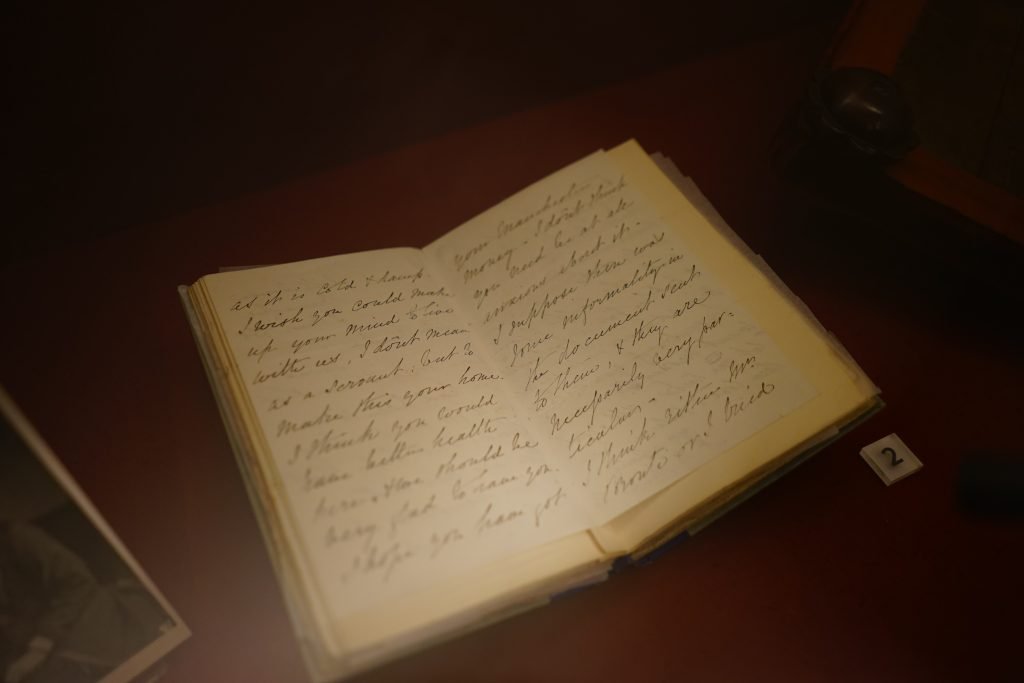 as it is cold & damp.
I wish you could make
up your mind to live
with us, I don't mean
as a servant; but to
make this your home.
I think you would
have better health
here. & we should be
very glad to have you.
I hope you have got
your Manchester
money. I don't think
you need be at all
anxious about it.
I suppose there was
some informality in
the document sent
to them; & they are
necessarily very par-
ticular.
I think either Mr.
or I tried
2